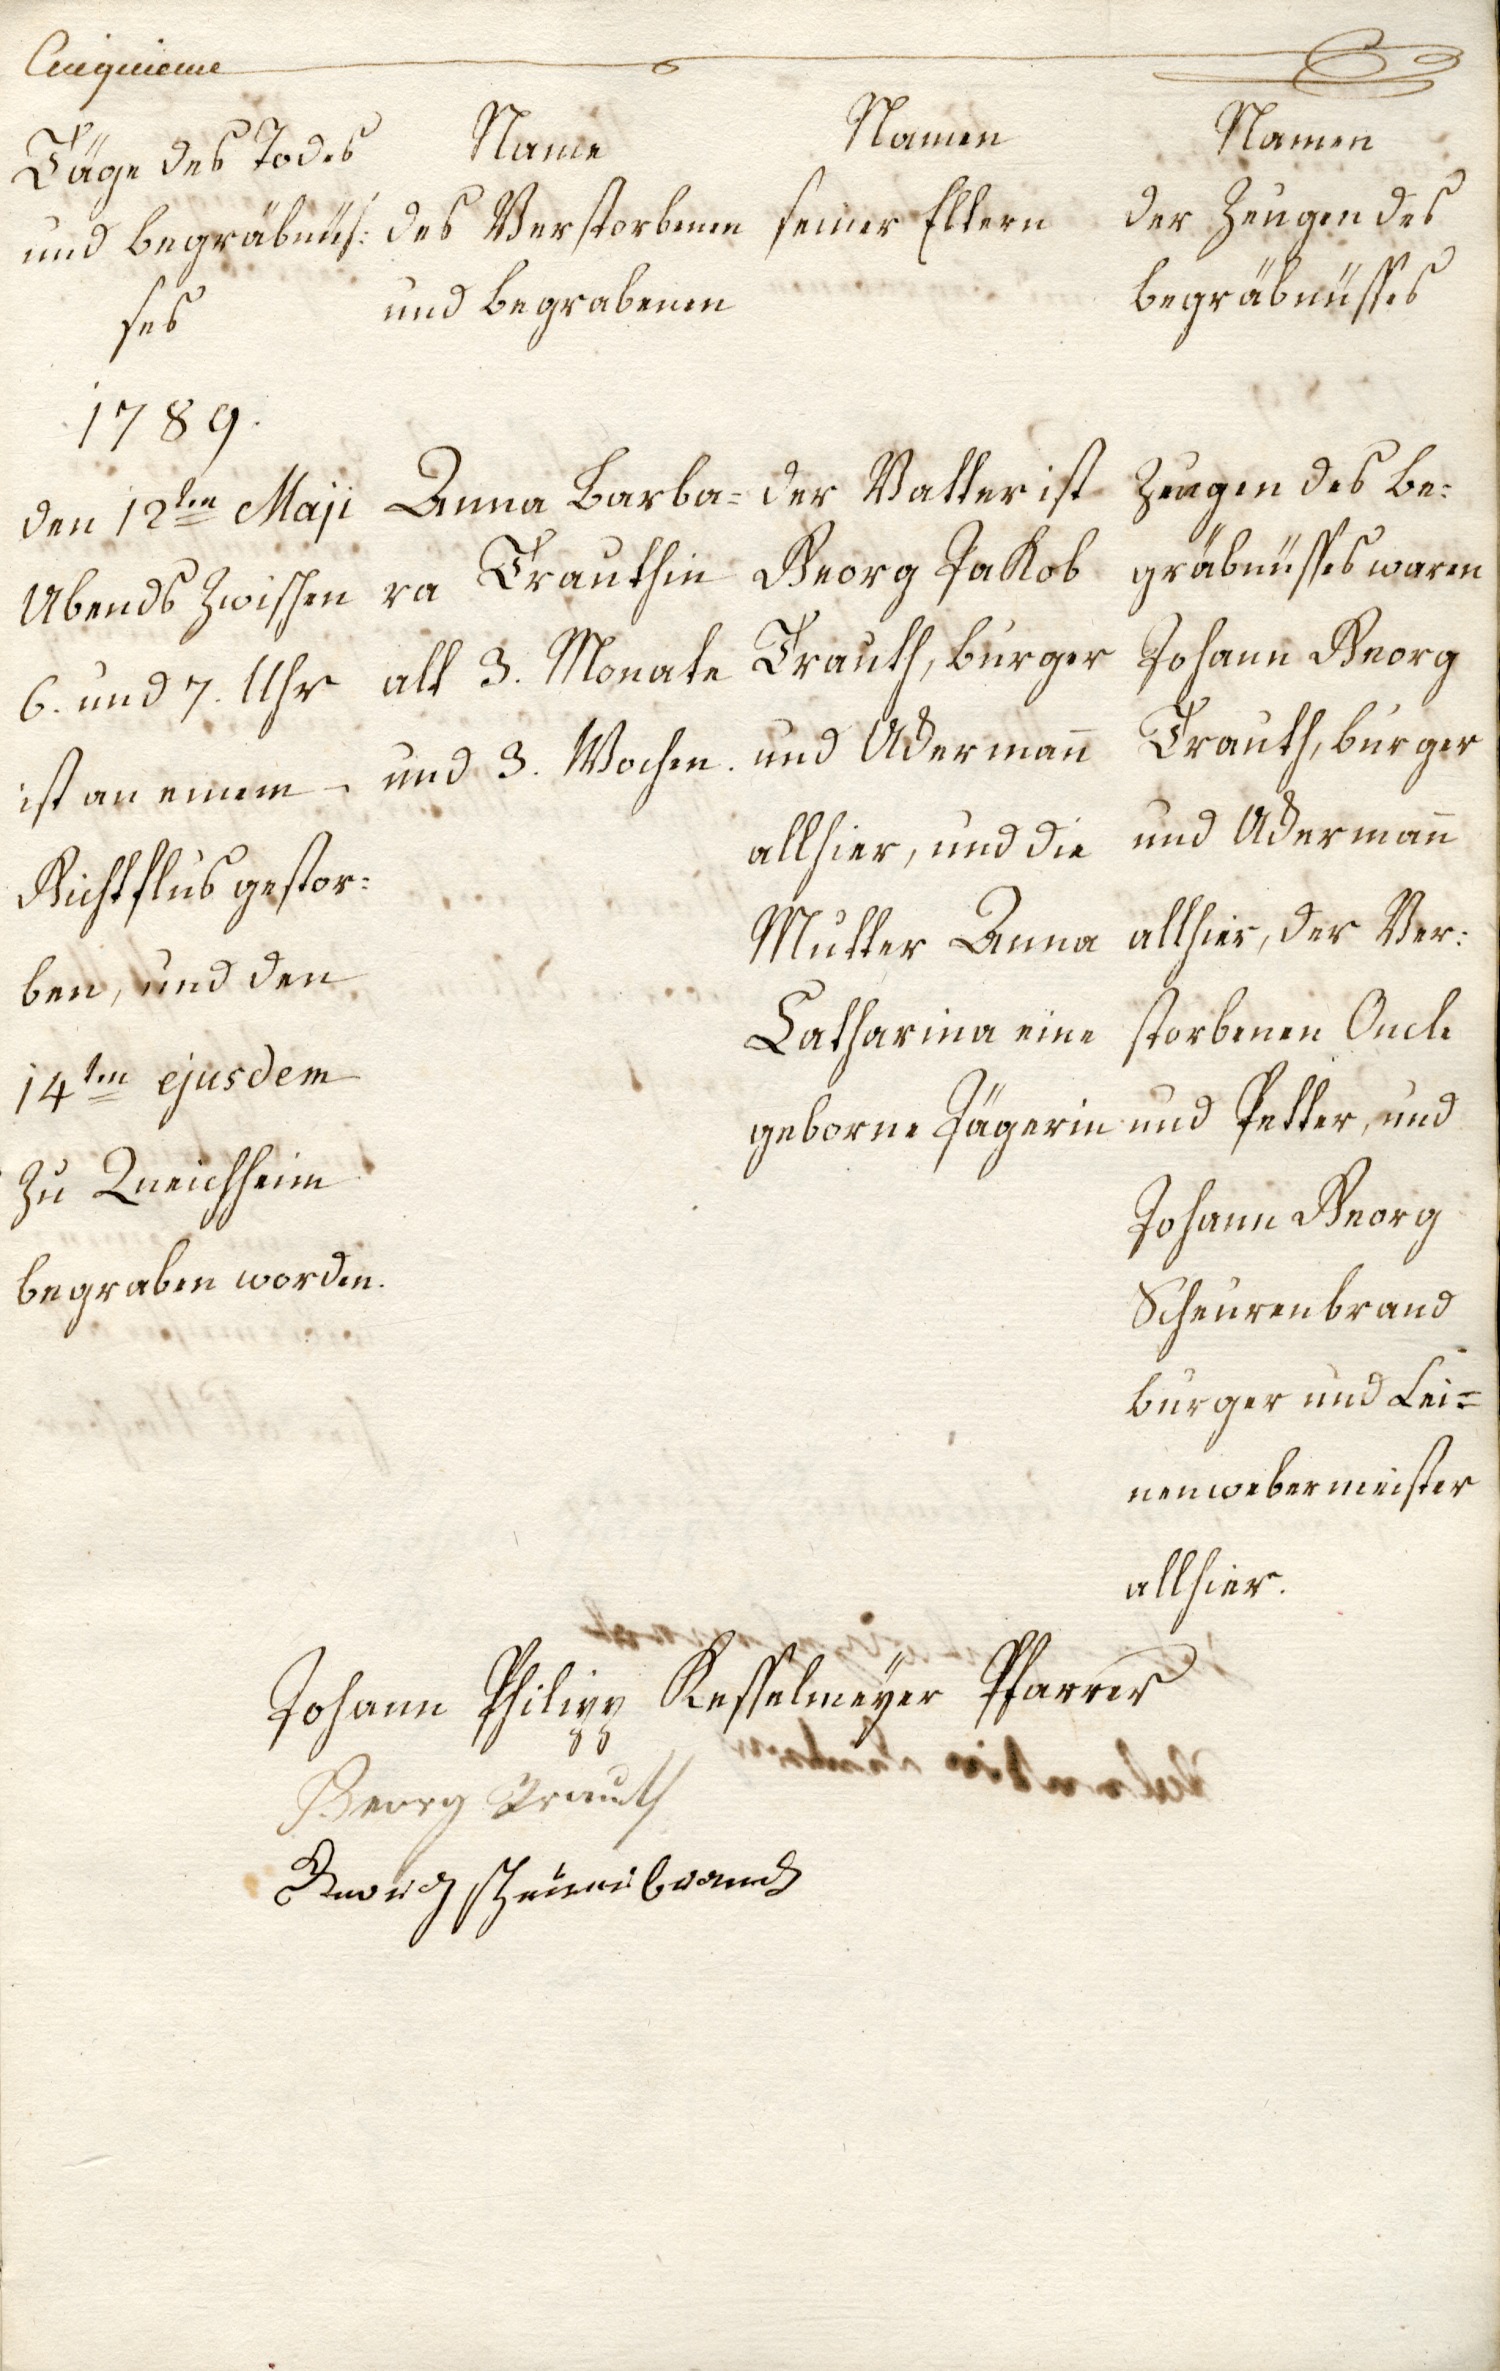 Cinquieme
Täge des Todes
und begräbnüs:
ses
1789.
den 12ten Maji
Abends zwischen
6. und 7. Uhr
ist an einem
Gichtflus gestor:
ben, und den
14ten ejusdem
zu Queichheim
begraben worden.
Name
des Verstorbenen
und begrabenen
Anna Barba=
ra Trauthin
alt 3. Monate
und 3. Wochen.
Namen
seiner Eltern
der Vatter ist
Georg Jakob
Trauth, burger
und Akermañ
allhier, und die
Mutter Anna
Catharina eine
geborne Jägerin
Namen
der Zeugen des
begräbnüsses
Zeugen des Be:
gräbnüsses waren
Johann Georg
Trauth, burger
und Akermañ
allhier, der Ver:
storbenen Oncle
und Petter, und
Johann Georg
Scheurenbrand
burger und Lei=
nenwebermeister
allhier.
Johann Philipp Kesselmeÿer Pfarrer
Georg Trauth
Georg scheurenbrand